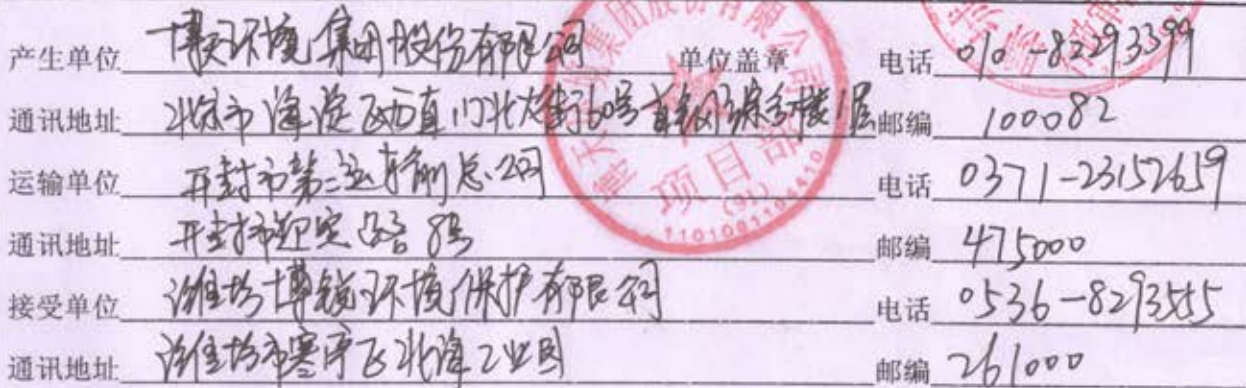 产生单位 博天环境集团股份有限公司 单位盖章 电话 010-82293399
通讯地址 北京市海淀区西直门北大街60号首钢综合楼1层 邮编 100082
运输单位 开封市第二运输总公司 电话 0371-23152659
通讯地址 开封市迎宾路8号 邮编 475000
接受单位 潍坊博锐环境保护有限公司 电话 0536-8293555
通讯地址 潍坊市寒亭区北海工业园 邮编 261000
项目部
(91)